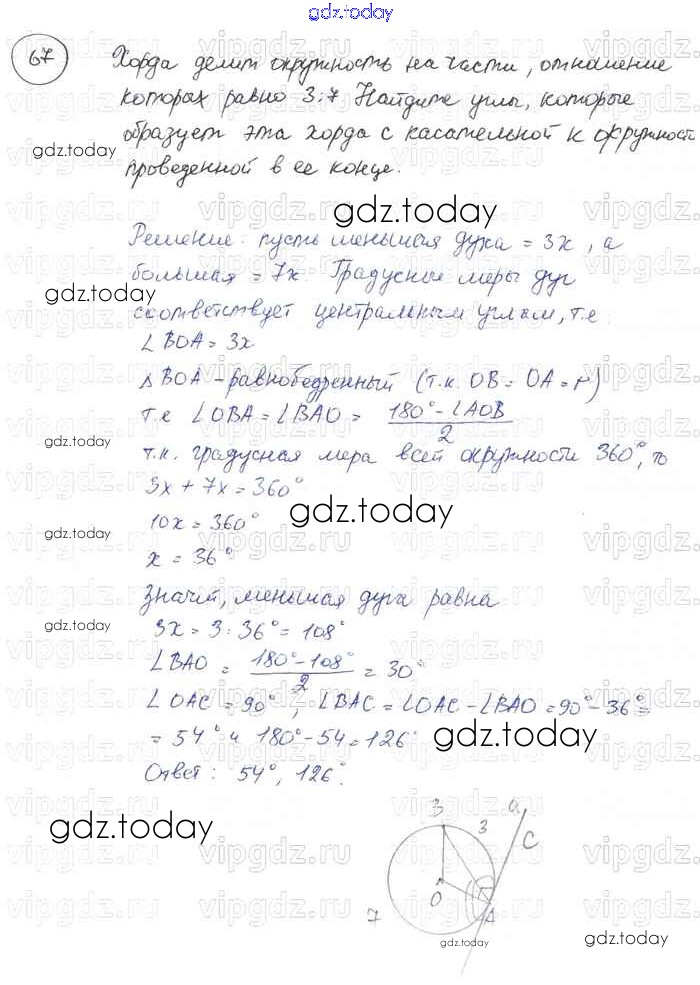 gdz.today
67 Хорда делит окружность на части, отношение
которых равно 3:7 Найдите углы, которые
образует эта хорда с касательной к окружности
gdz.today
проведенной в ее конце.
gdz.today
Решение: пусть меньшая дуга = 3x, а
большая = 7x. Градусные меры дуг
gdz.today
соответствует центральным углам, т.е
∠BOA = 3x
△BOA - равнобедренный (т.к. OB = OA = r)
т.е ∠OBA = ∠BAO = 180° - ∠AOB / 2
gdz.today
т.к. градусная мера всей окружности 360°, то
3x + 7x = 360°
10x = 360°
gdz.today
gdz.today
x = 36°
Значит, меньшая дуга равна
gdz.today
3x = 3 · 36° = 108°
∠BAO = 180° - 108° / 2 = 30°
∠OAC = 90°, ∠BAC = ∠OAC - ∠BAO = 90° - 36° =
= 54° и 180° - 54 = 126°
gdz.today
Ответ: 54°, 126°.
gdz.today
B 3 a
C
O
7 A
gdz.today
gdz.today